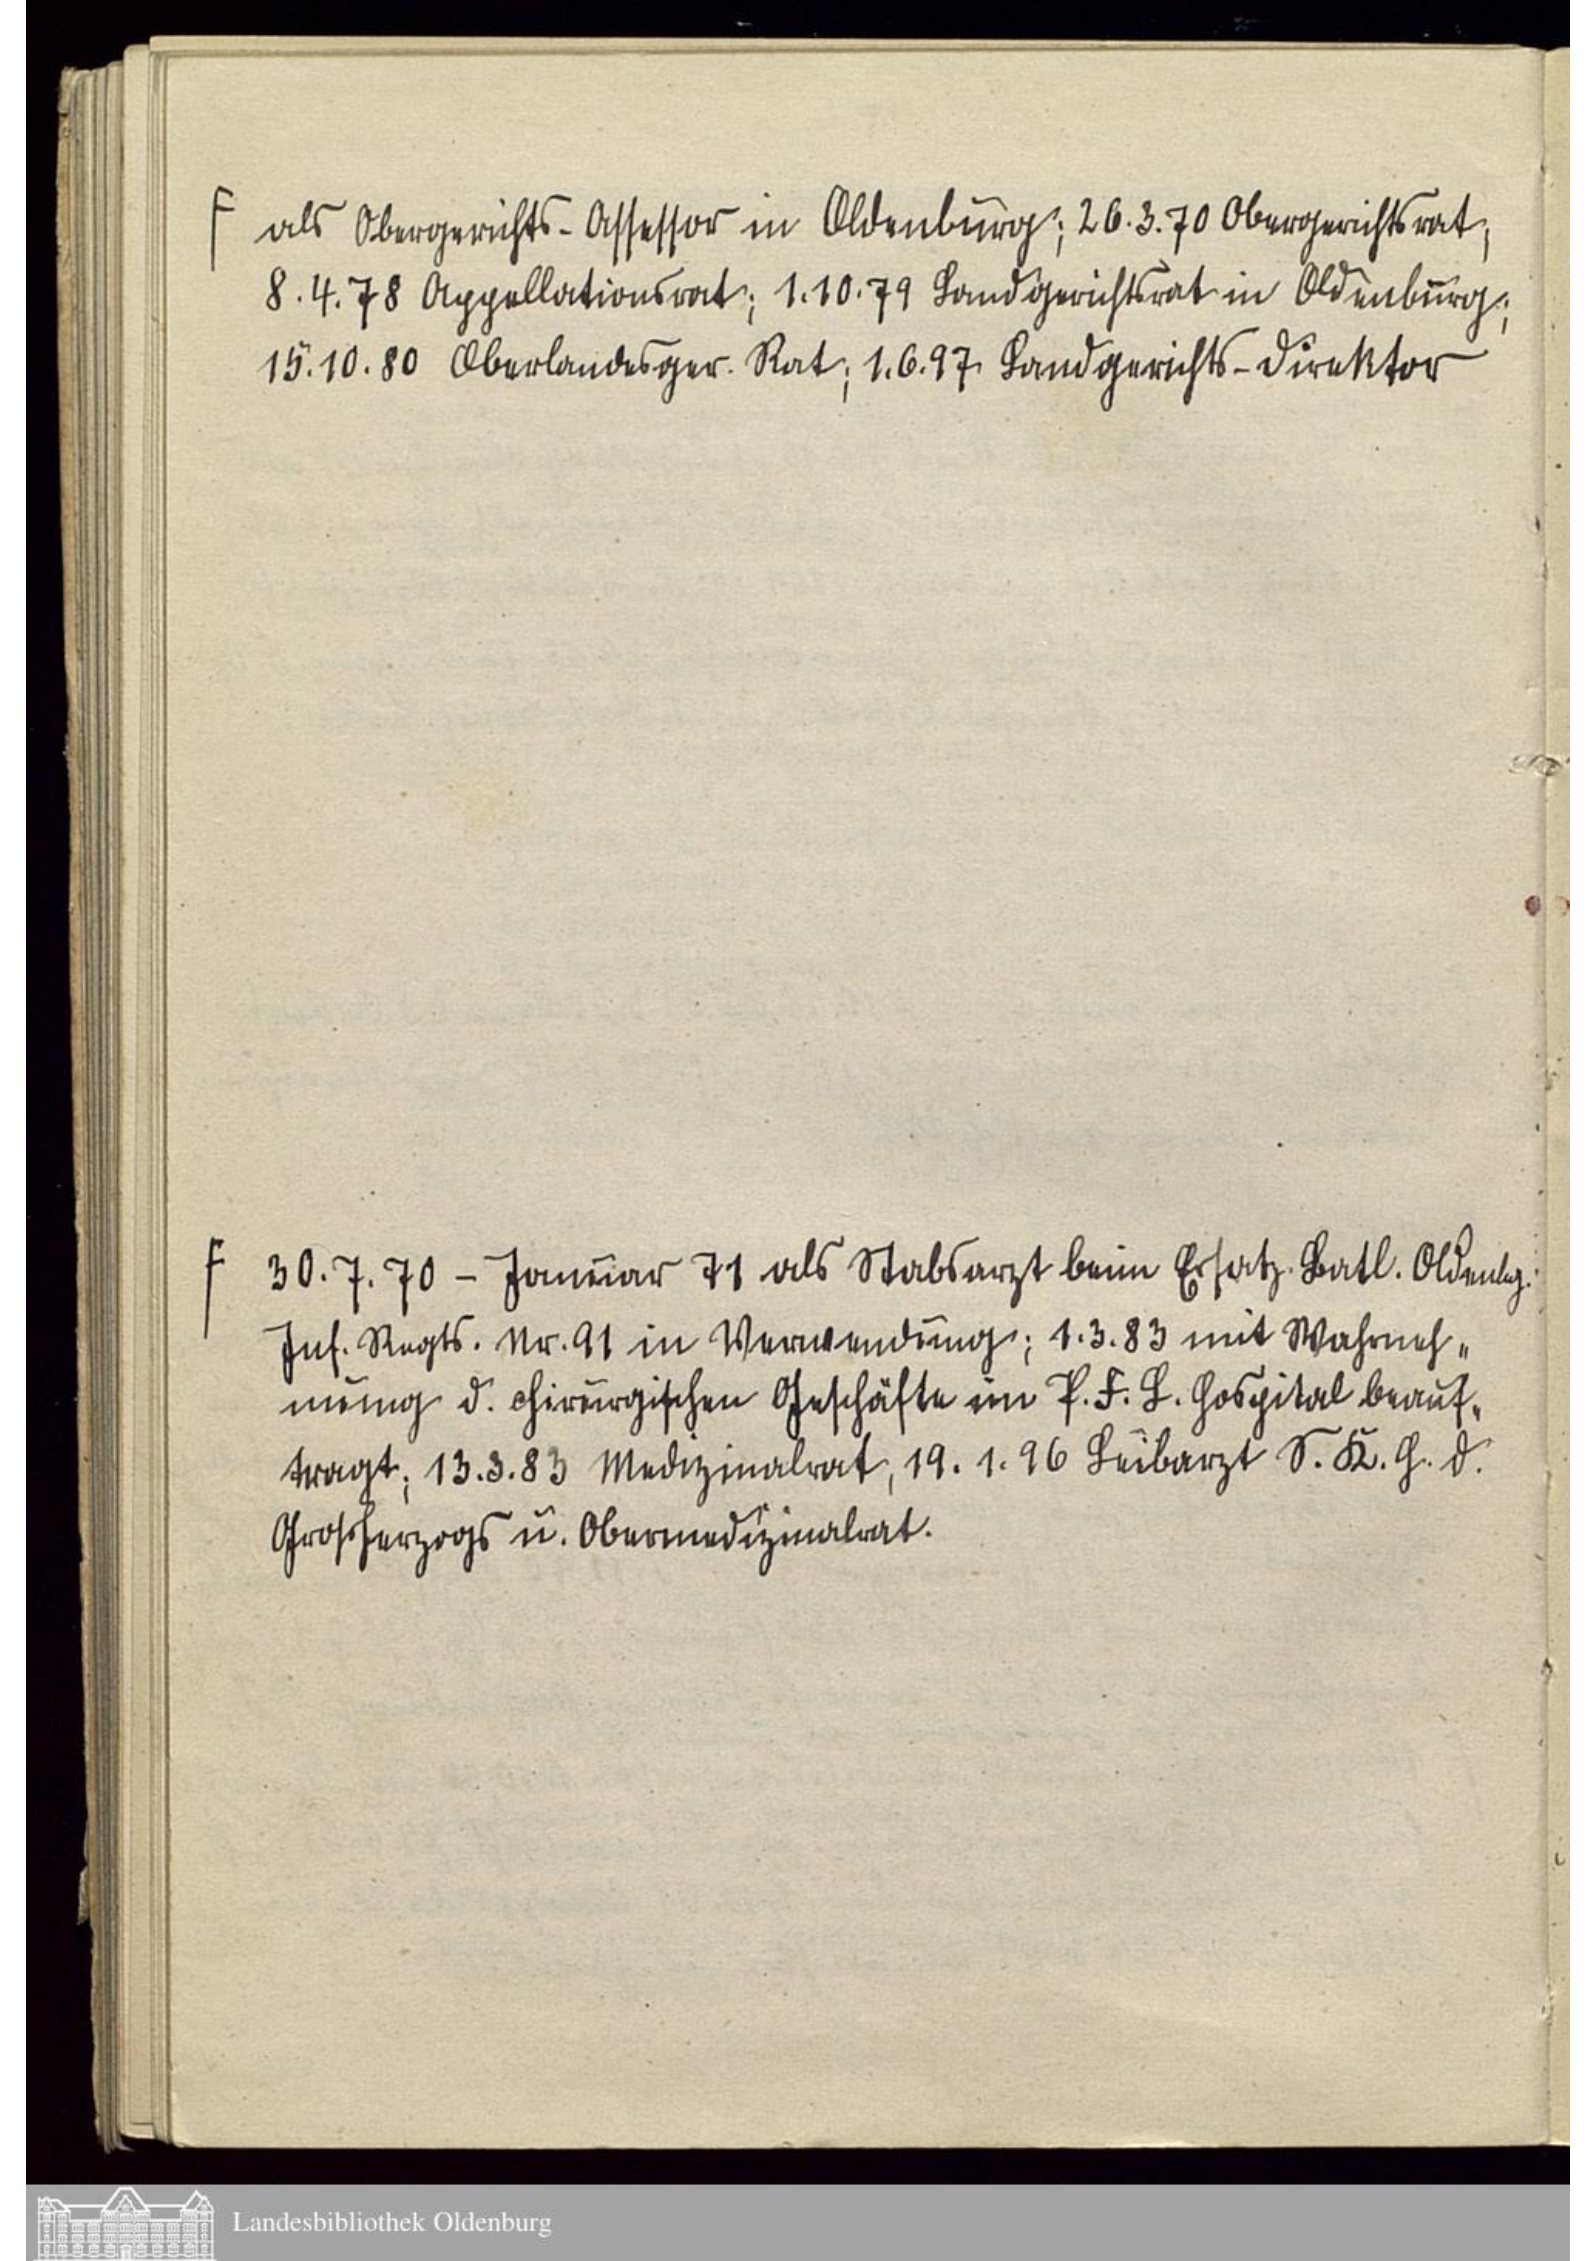 F als Obergerichts-Assessor in Oldenburg; 26.3.70 Obergerichtsrat;
8.4.78 Appellationsrat; 1.10.79 Landgerichtsrat in Oldenburg;
15.10.80 Oberlandesger. Rat; 1.6.97 Landgerichts-Direktor
F 30.7.70 – Januar 71 als Stabsarzt beim Ersatz-Batl. Oldenbg.
Inf. Regts. Nr. 91 in Verwendung; 1.3.83 mit Wahrneh„
mung d. chirurgischen Geschäfte im P. F. L. Hospital beauf„
tragt; 13.3.83 Medizinalrat, 19.1.96 Leibarzt S. K. H. d.
Großherzogs u. Obermedizinalrat.
Landesbibliothek Oldenburg